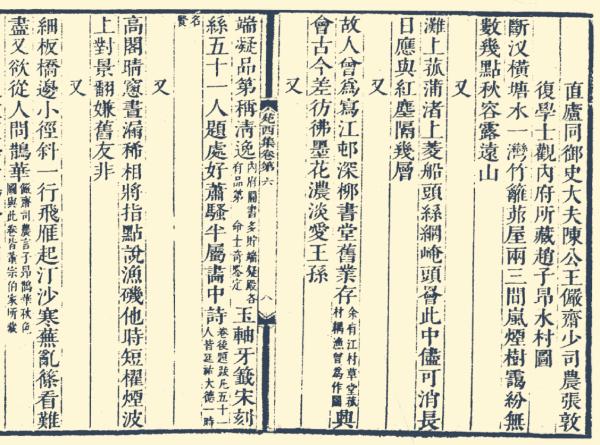 直廬同御史大夫陳公王儼齋少司農張敦
復學士觀内府所藏趙子昂水村圖
斷汊橫塘水一灣竹籬茆屋兩三間嵐煙樹靄紛無
數幾點秋容露遠山
又
灘上菰蒲渚上菱船頭絲網崦頭罾此中儘可消長
日應與紅塵隔幾層
又
故人曾爲寫江邨深柳書堂舊業存余有江村草堂荻村耦漁曾爲作圖興
會古今差彷彿墨花濃淡愛王孫
又
苑西集卷第六 八
端凝品第稱清逸内府圖書多貯端凝殿各有品第 命士奇鑒定玉軸牙籤宋刻
絲五十一人題處好蕭騷半屬畵中詩卷後題跋凡五十一人皆延祐大德一時
名賢
又
高閣晴窻晝漏稀相將指點說漁磯他時短櫂煙波
上對景翻嫌舊友非
又
細板橋邊小徑斜一行飛雁起汀沙寒蕪亂篠看難
盡又欲從人問鵲華儼齋司農言子昂鵲華秋色圖與此卷皆董宗伯家所藏